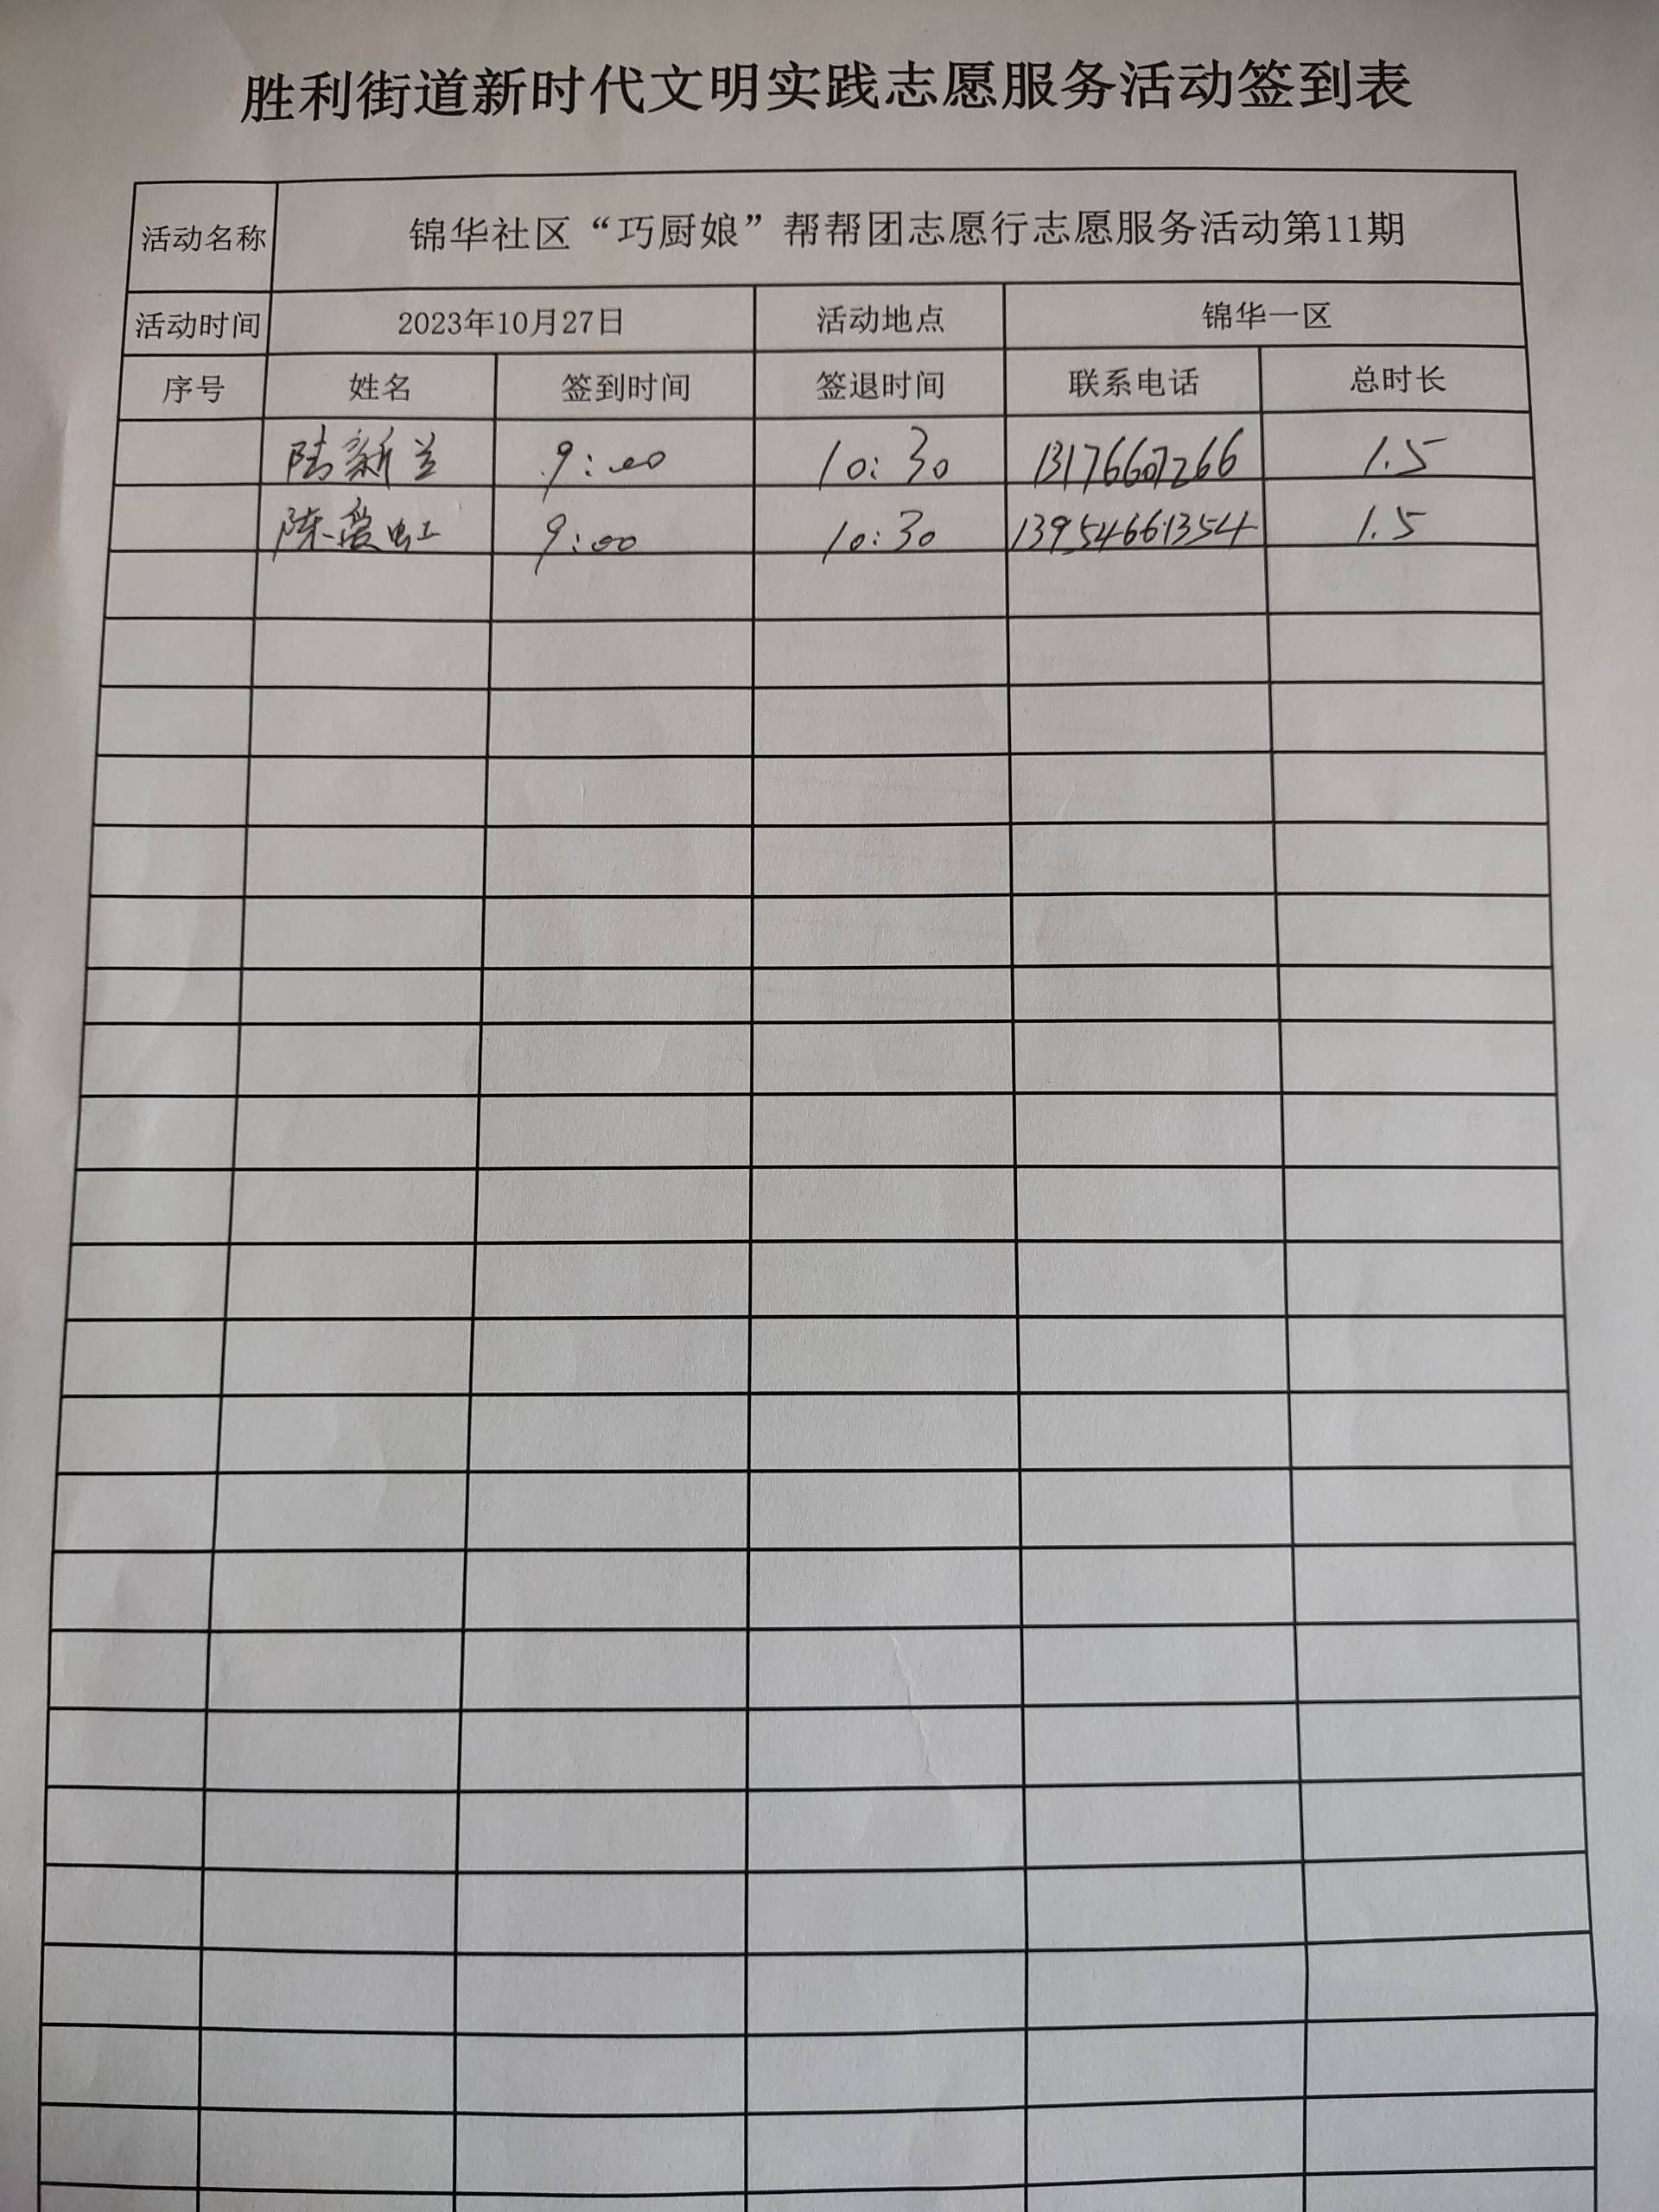 胜利街道新时代文明实践志愿服务活动签到表
活动名称 锦华社区“巧厨娘”帮帮团志愿行志愿服务活动第11期
活动时间 2023年10月27日 活动地点 锦华一区
序号 姓名 签到时间 签退时间 联系电话 总时长
陆新兰 9:00 10:30 13176607266 1.5
陈爱虹 9:00 10:30 13954661354 1.5